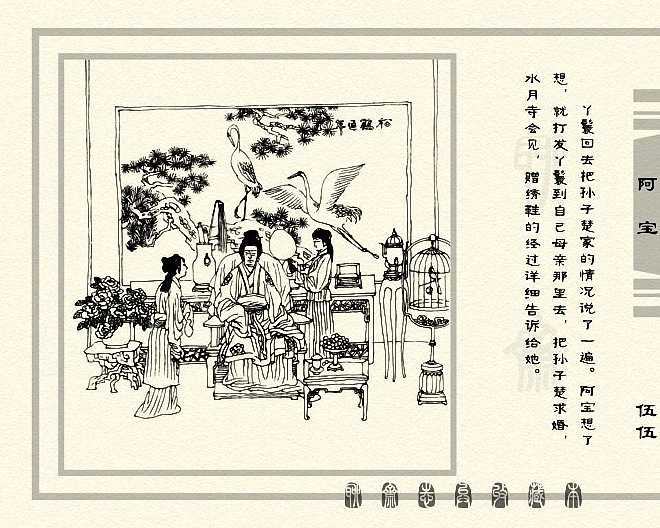 丫鬟回去把孙子楚家的情况说了一遍。阿宝想了
想，就打发丫鬟到自己母亲那里去，把孙子楚求婚，
水月寺会见，赠绣鞋的经过详细告诉给她。
阿宝
伍伍
松鶴延年